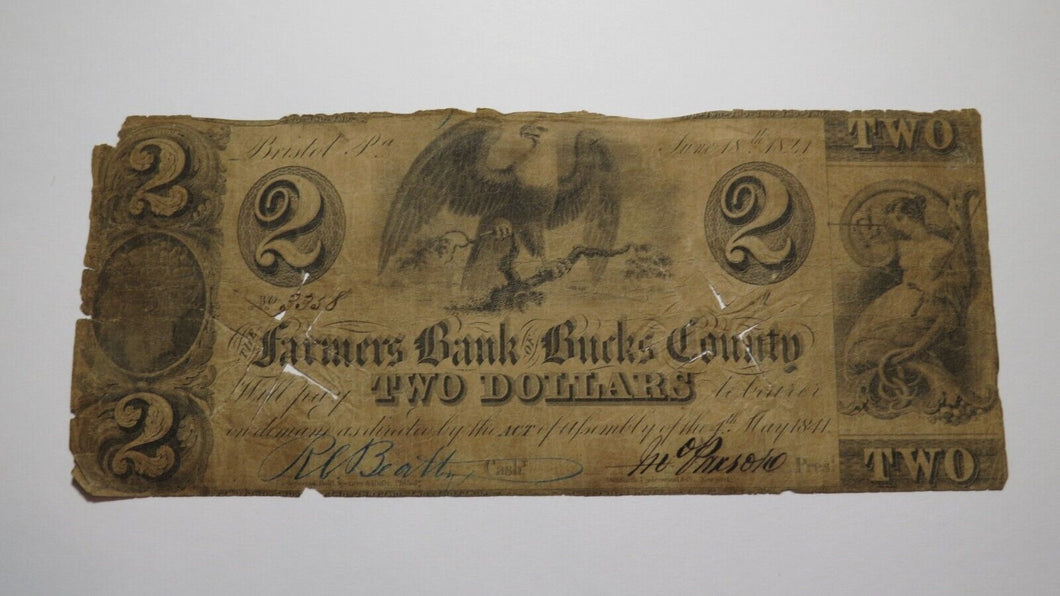 2 TWO
Bristol Pa June 18th 1841
2 2
No 3358
THE Farmers Bank OF Bucks County
Will pay TWO DOLLARS to bearer
on demand as directed by the ACT of Assembly of the 4th May 1841
2 R C Beatty Cash. Jno Parsons Pres. TWO